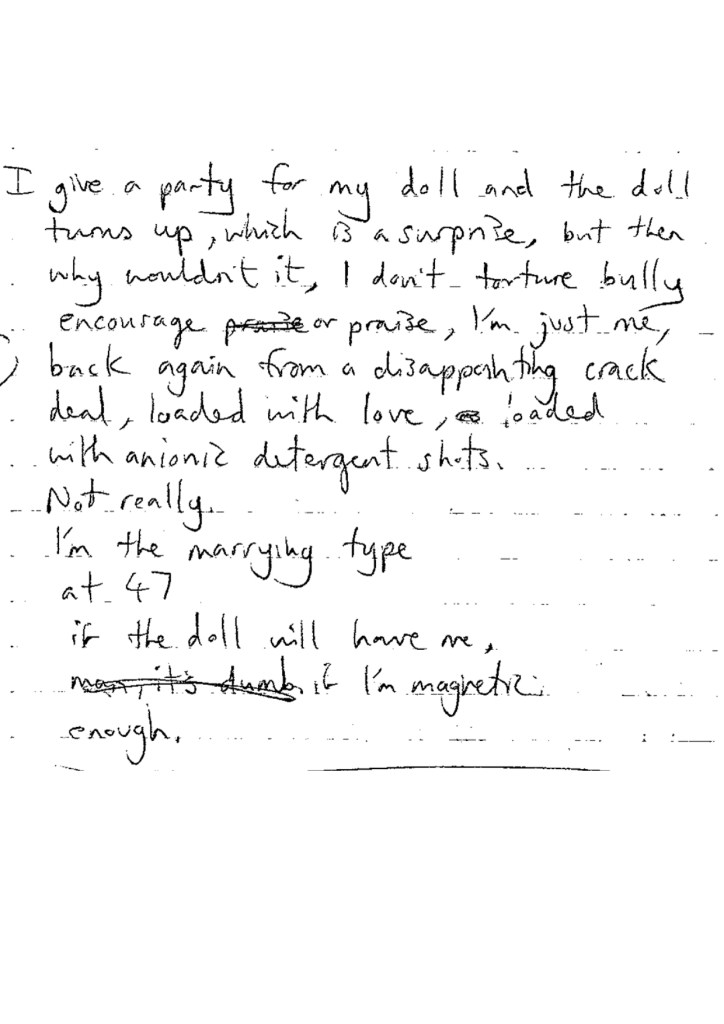 I give a party for my doll and the doll
turns up, which is a surprise, but then
why wouldn't it, I don't torture bully
encourage praise or praise, I'm just me,
back again from a disappointing crack
deal, loaded with love, loaded
with anionic detergent shots.
Not really.
I'm the marrying type
at 47
if the doll will have me,
man, it's dumb, if I'm magnetic
enough.